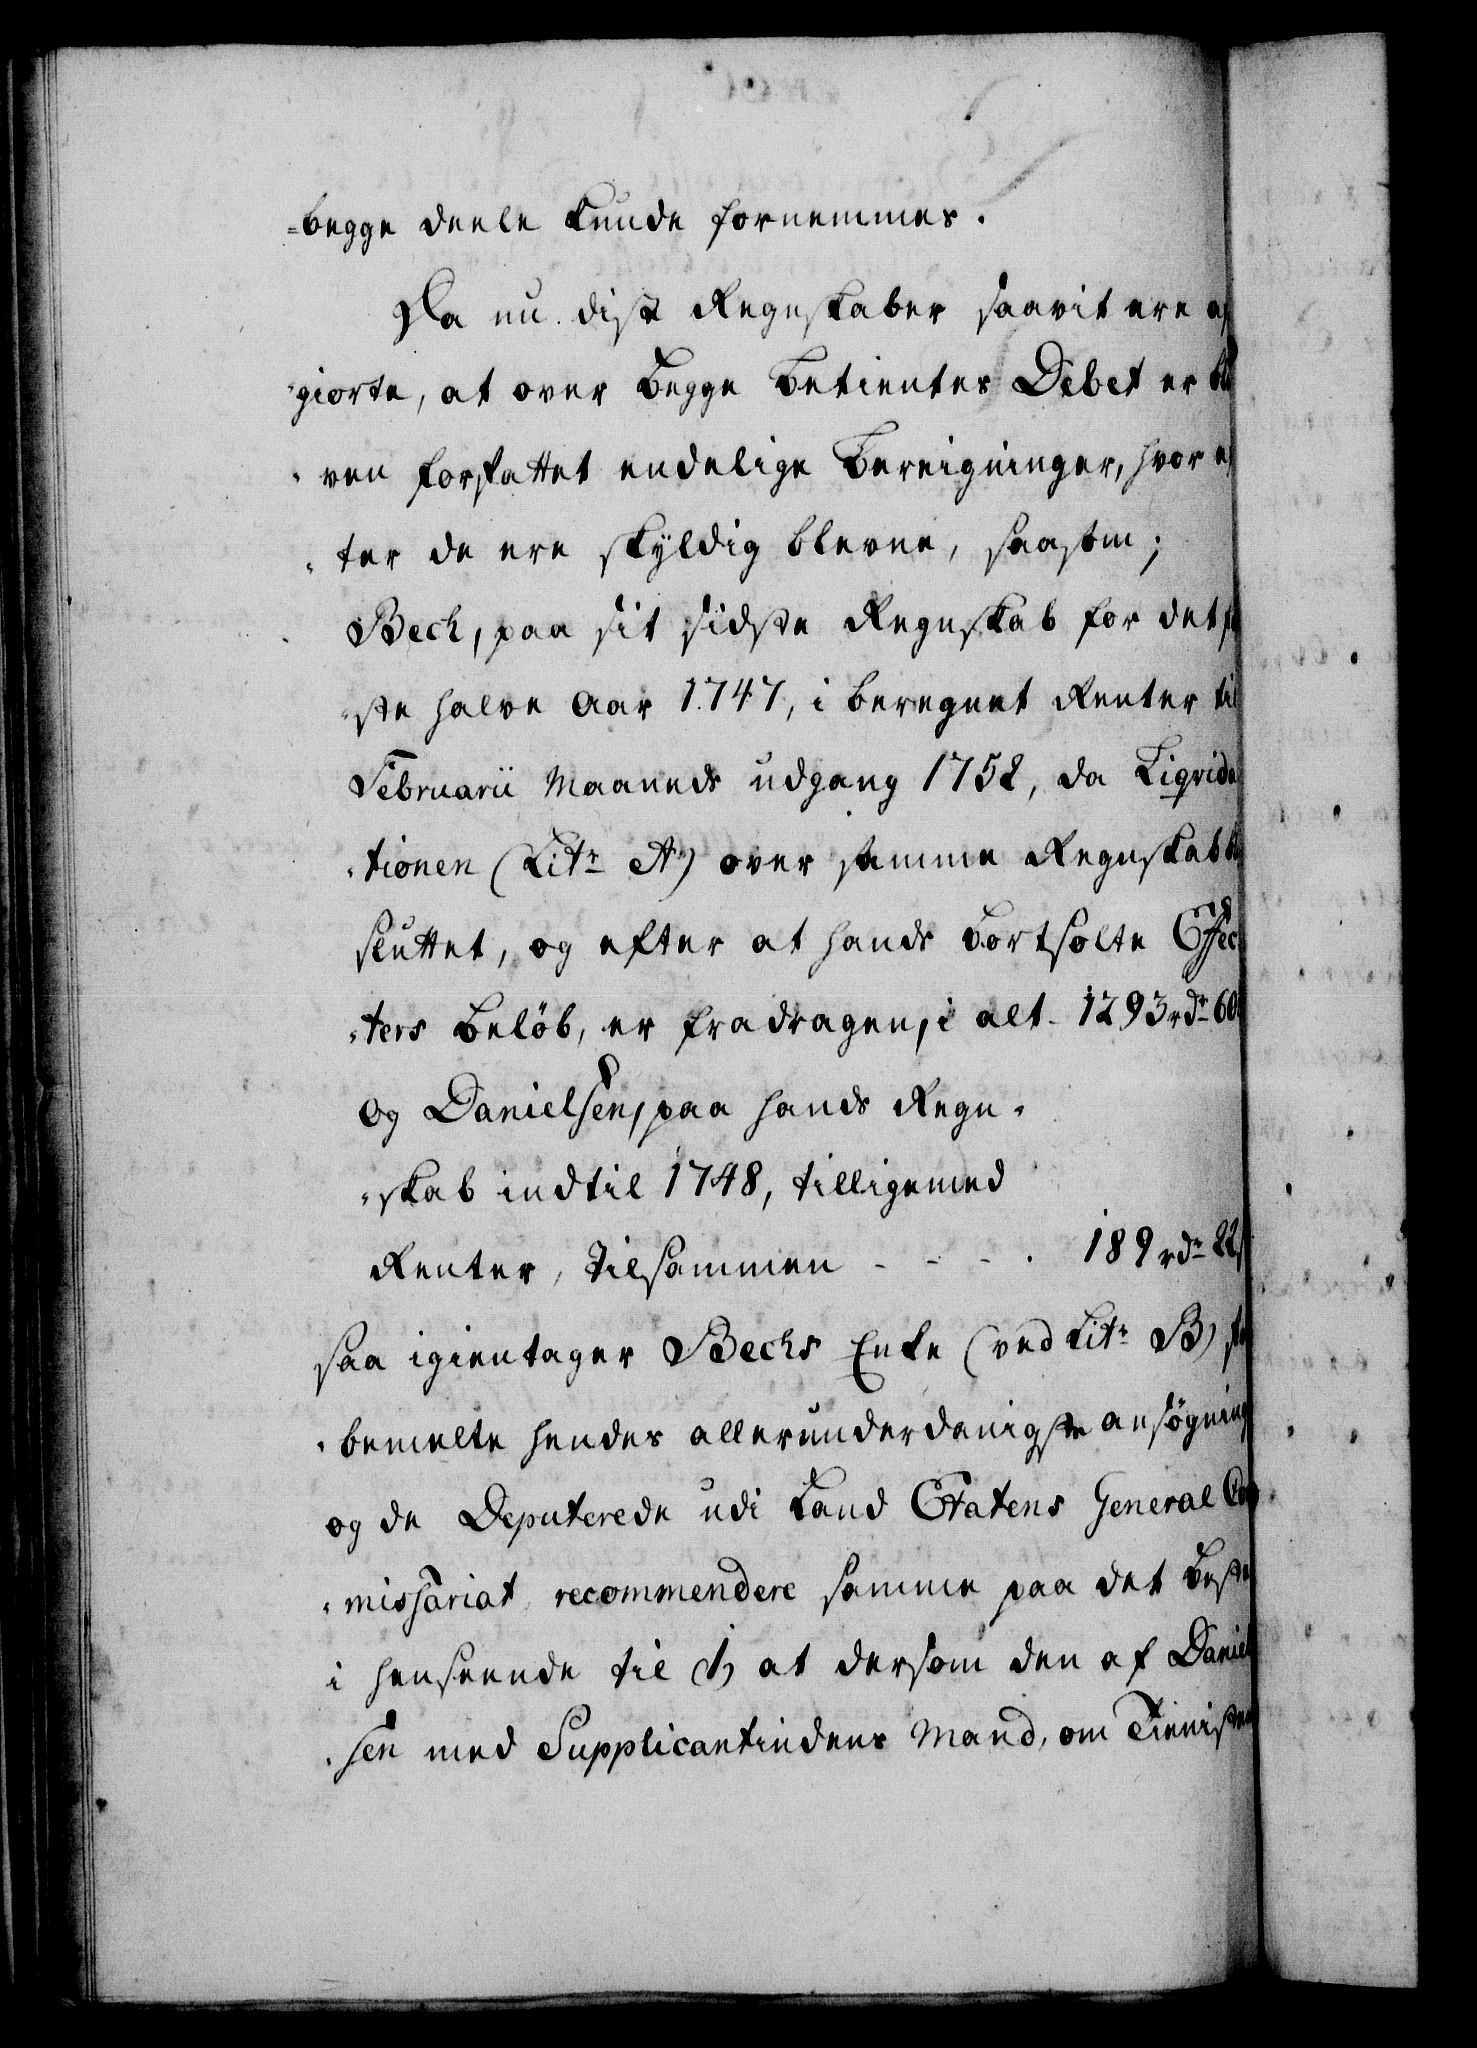 =begge deele kunde fornemmes.
Da nu disse Regnskaber saavit ere af
"giorte, at over begge betientes Debet er ble
"ven forfattet endelige Bereigninger, hvor ef
"ter de ere skyldig blevne, saasom;
Bech, paa sit sidste Regnskab for det før
"ste halve Aar 1747, i beregnet Renter til
Februarii Maaneds udgang 1752, da Liqvida
"tionen (Litr A) over samme Regnskab bl
sluttet, og efter at hands bortsolte Effec
"ters beløb, er fradragen, i alt - 1293 rdr 60
Og Danielsen, paa hands Regn"
"skab indtil 1748, tilligemed
Renter, tilsammen - - - . 189 rdr 22
saa igientager Bechs Enke (ved Litr B)
"bemelte hendes allerunderdanigste ansøgning
og de Deputerede udi Land Etatens General Com
"missariat recommendere samme paa det beste
i henseende til 1) at dersom den af Daniel
"sen med Supplicantindens Mand, om Tienisten